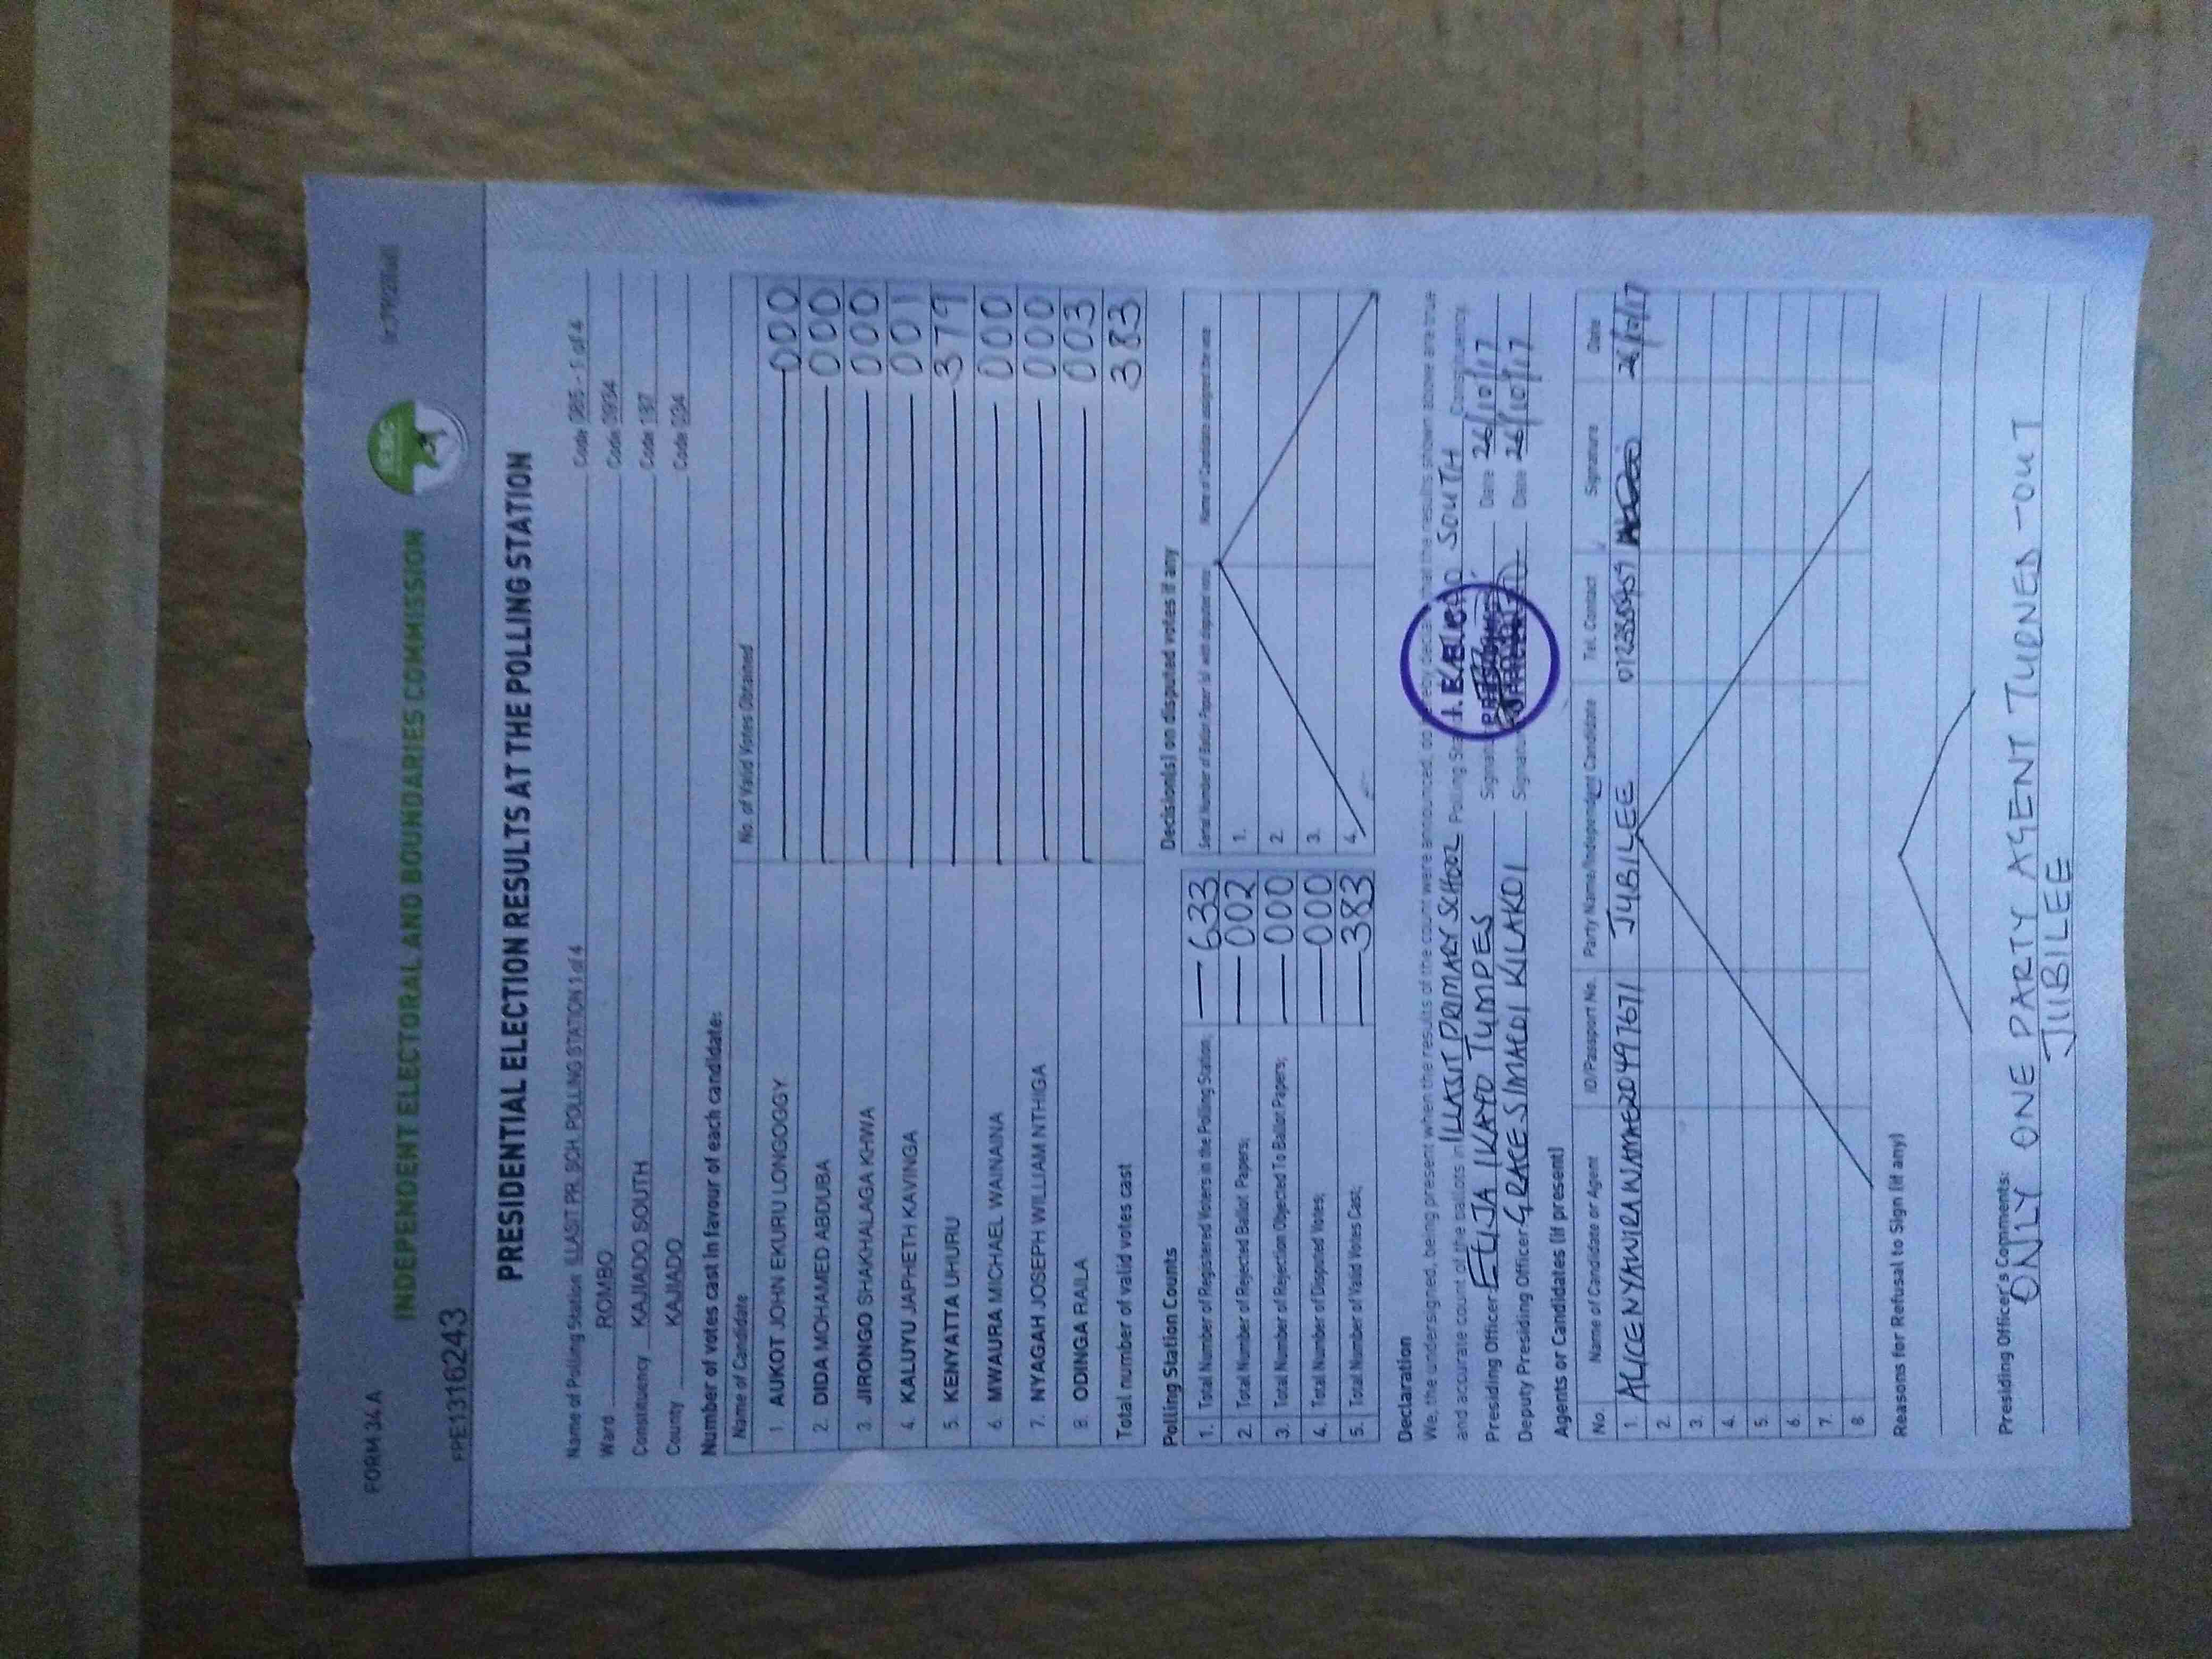 FORM 34 A
INDEPENDENT ELECTORAL AND BOUNDARIES COMMISSION
IEBC
PPE13116243
PRESIDENTIAL ELECTION RESULTS AT THE POLLING STATION
Name of Polling Station ILLASIT PR. SCH. POLLING STATION 1 of 4 Code 085 - 1 of 4
Ward ROMBO Code 0934
Constituency KAJIADO SOUTH Code 187
County KAJIADO Code 034
Number of votes cast in favour of each candidate:
Name of Candidate No. of Valid Votes Obtained
1. AUKOT JOHN EKURU LONGOGGY 000
2. DIDA MOHAMED ABDUBA 000
3. JIRONGO SHAKHALAGA KHWA 000
4. KALUYU JAPHETH KAVINGA 001
5. KENYATTA UHURU 379
6. MWAURA MICHAEL WAINAINA 000
7. NYAGAH JOSEPH WILLIAM NTHIGA 000
8. ODINGA RAILA 003
Total number of valid votes cast 383
Polling Station Counts
1. Total Number of Registered Voters in the Polling Station; 633
2. Total Number of Rejected Ballot Papers; 002
3. Total Number of Rejection Objected To Ballot Papers; 000
4. Total Number of Disputed Votes; 000
5. Total Number of Valid Votes Cast; 383
Decision(s) on disputed votes if any
Serial Number of Ballot Paper (s) with disputed votes Name of Candidate assigned the vote
1.
2.
3.
4.
Declaration
We, the undersigned, being present when the results of the count were announced, do hereby declare that the results shown above are true
and accurate count of the ballots in ILLASIT PRIMARY SCHOOL Polling Station KAJIADO SOUTH Constituency.
Presiding Officer EUJA IKAYO TUMPES Signature Date 26/10/17
Deputy Presiding Officer GRACE SIMALOI KILAKOI Signature Date 26/10/17
Agents or Candidates (if present)
No. Name of Candidate or Agent ID/Passport No. Party Name/Independent Candidate Tel. Contact Signature Date
1. ALICE NYAWIRA 20497671 JUBILEE 26/10/17
2.
3.
4.
5.
6.
7.
8.
Reasons for Refusal to Sign (if any)
Presiding Officer's Comments:
ONLY ONE PARTY AGENT TURNED-OUT
JUBILEE